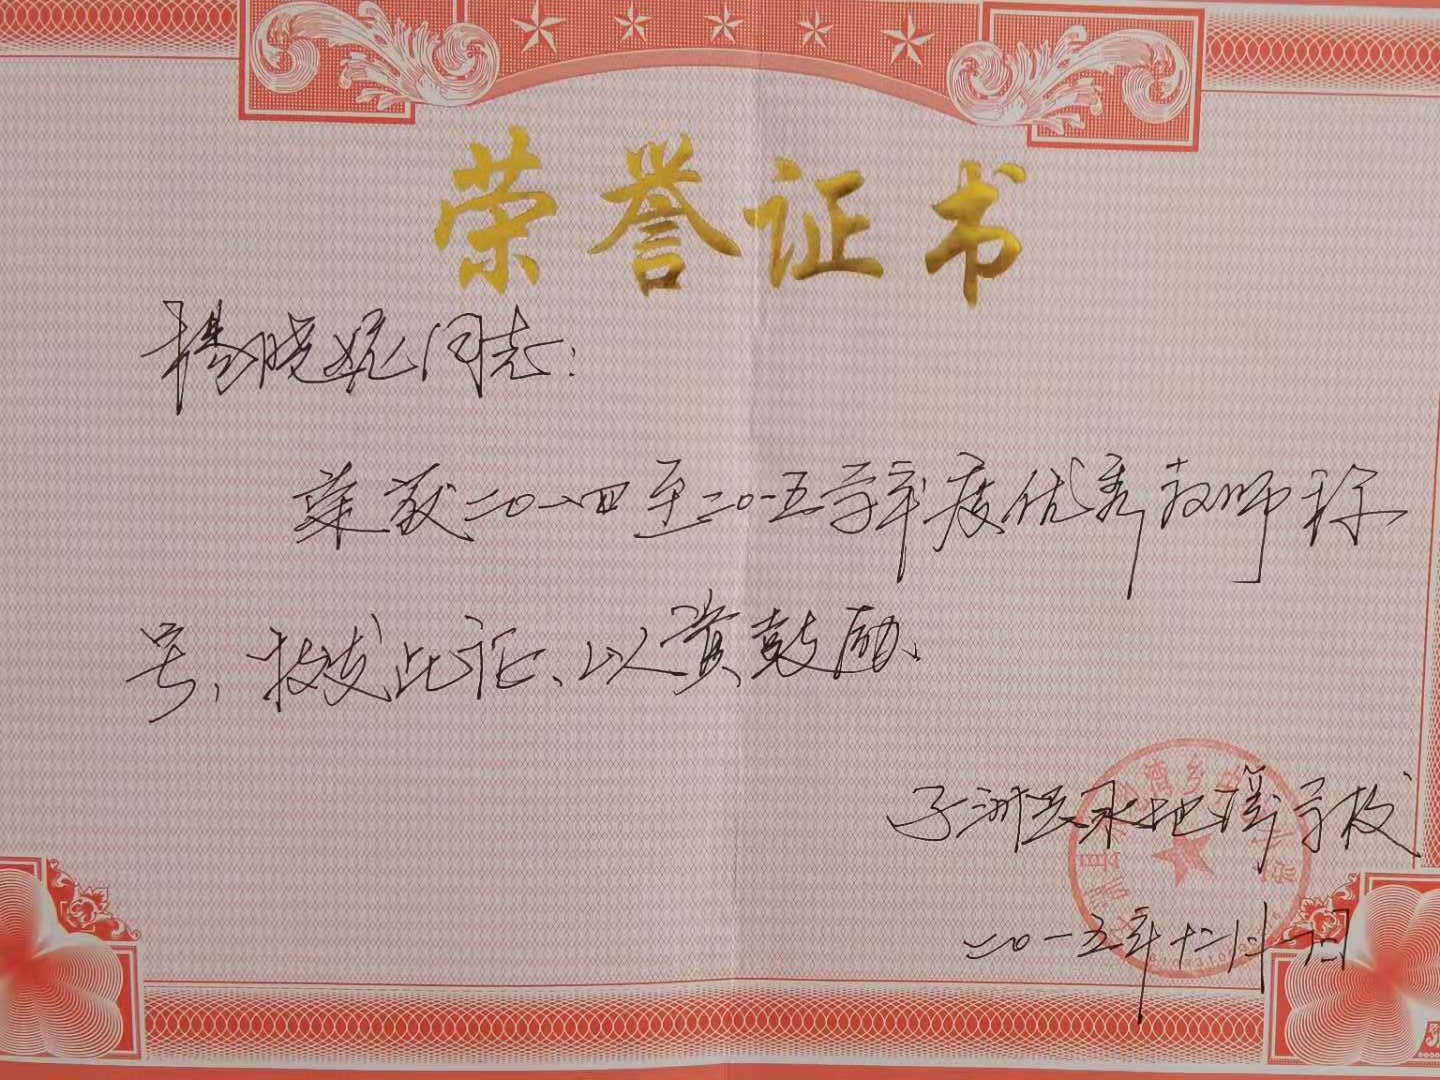 荣誉证书
杨晓妮同志:
荣获二〇一四至二〇一五学年度优秀教师称
号,特发此证、以资鼓励、
子洲县永地滩学校
二〇一五年十二月一日